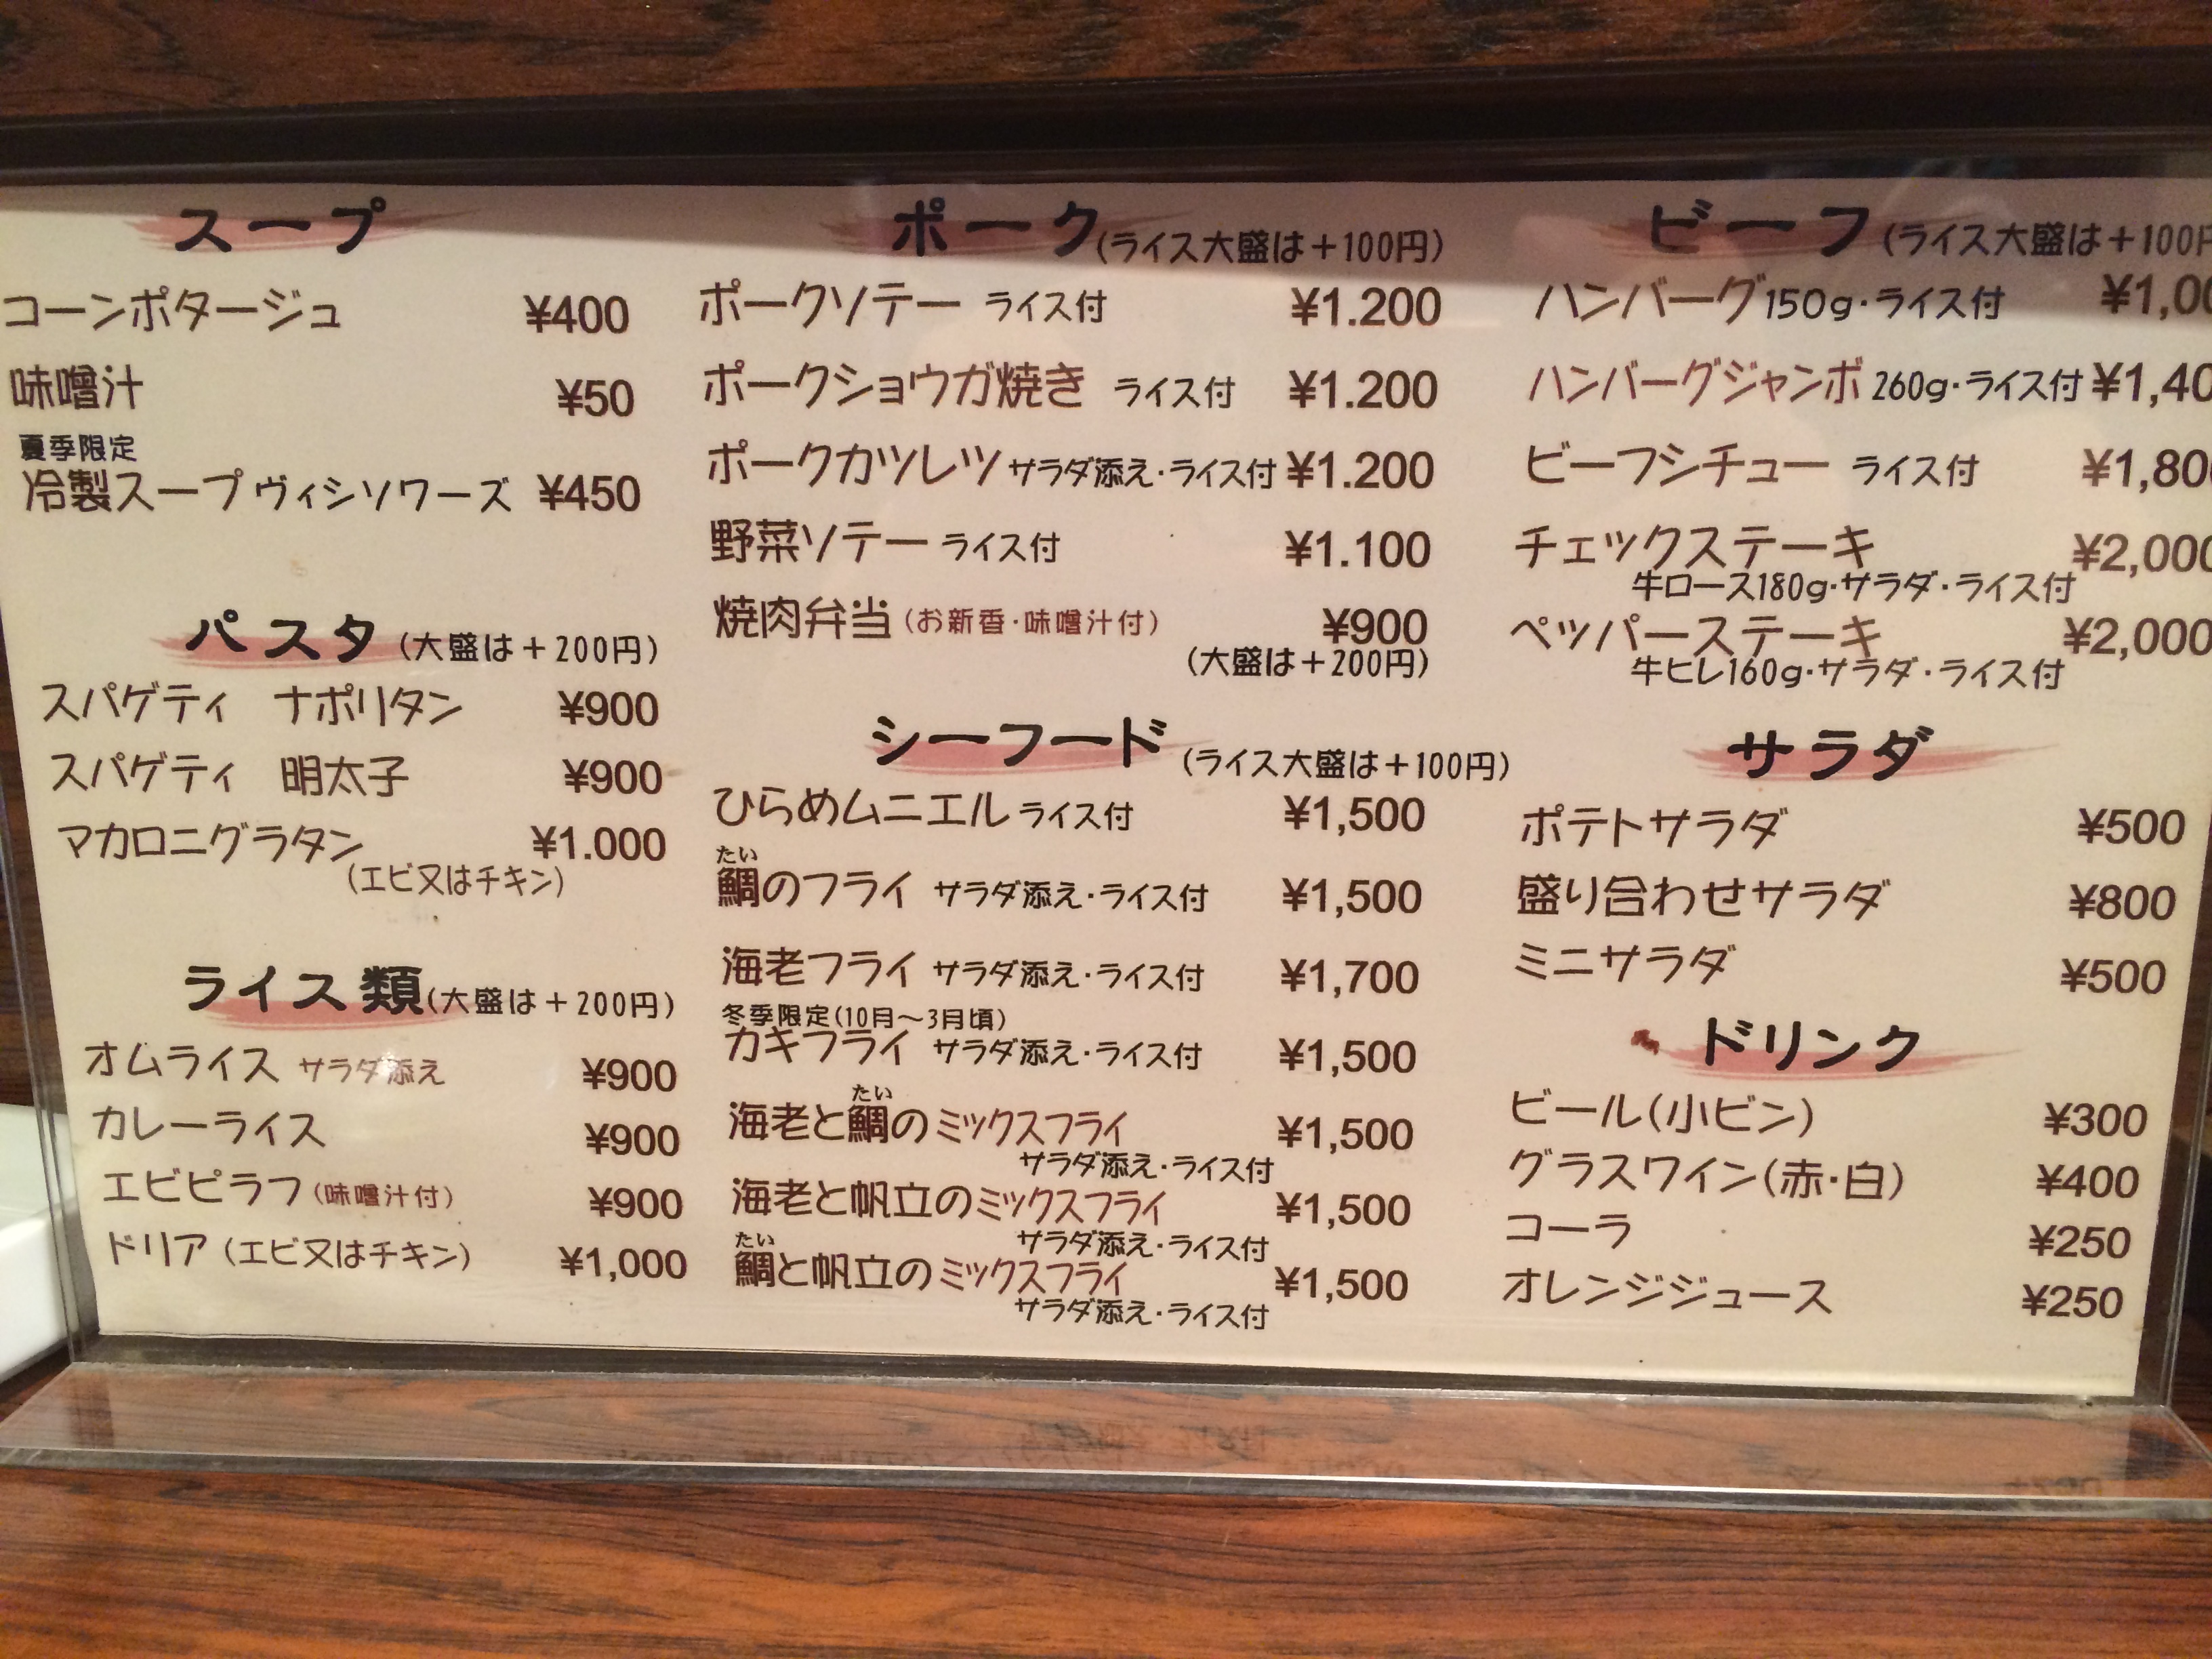 スープ
コーンポタージュ ¥400
味噌汁 ¥50
夏季限定
冷製スープ ヴィシソワーズ ¥450
パスタ (大盛は+200円)
スパゲティ ナポリタン ¥900
スパゲティ 明太子 ¥900
マカロニグラタン ¥1.000
(エビ又はチキン)
ライス類 (大盛は+200円)
オムライス サラダ添え ¥900
カレーライス ¥900
エビピラフ (味噌汁付) ¥900
ドリア (エビ又はチキン) ¥1,000
ポーク (ライス大盛は+100円)
ポークソテー ライス付 ¥1.200
ポークショウガ焼き ライス付 ¥1.200
ポークカツレツ サラダ添え・ライス付 ¥1.200
野菜ソテー ライス付 ¥1.100
焼肉弁当 (お新香・味噌汁付) ¥900
(大盛は+200円)
シーフード (ライス大盛は+100円)
ひらめムニエル ライス付 ¥1,500
たい
鯛のフライ サラダ添え・ライス付 ¥1,500
海老フライ サラダ添え・ライス付 ¥1,700
冬季限定(10月〜3月頃)
カキフライ サラダ添え・ライス付 ¥1,500
たい
海老と鯛のミックスフライ ¥1,500
サラダ添え・ライス付
海老と帆立のミックスフライ ¥1,500
サラダ添え・ライス付
たい
鯛と帆立のミックスフライ ¥1,500
サラダ添え・ライス付
ビーフ (ライス大盛は+100円
ハンバーグ 150g・ライス付 ¥1,00
ハンバーグジャンボ 260g・ライス付 ¥1,40
ビーフシチュー ライス付 ¥1,80
チェックステーキ ¥2,000
牛ロース180g・サラダ・ライス付
ペッパーステーキ ¥2,000
牛ヒレ160g・サラダ・ライス付
サラダ
ポテトサラダ ¥500
盛り合わせサラダ ¥800
ミニサラダ ¥500
ドリンク
ビール(小ビン) ¥300
グラスワイン(赤・白) ¥400
コーラ ¥250
オレンジジュース ¥250